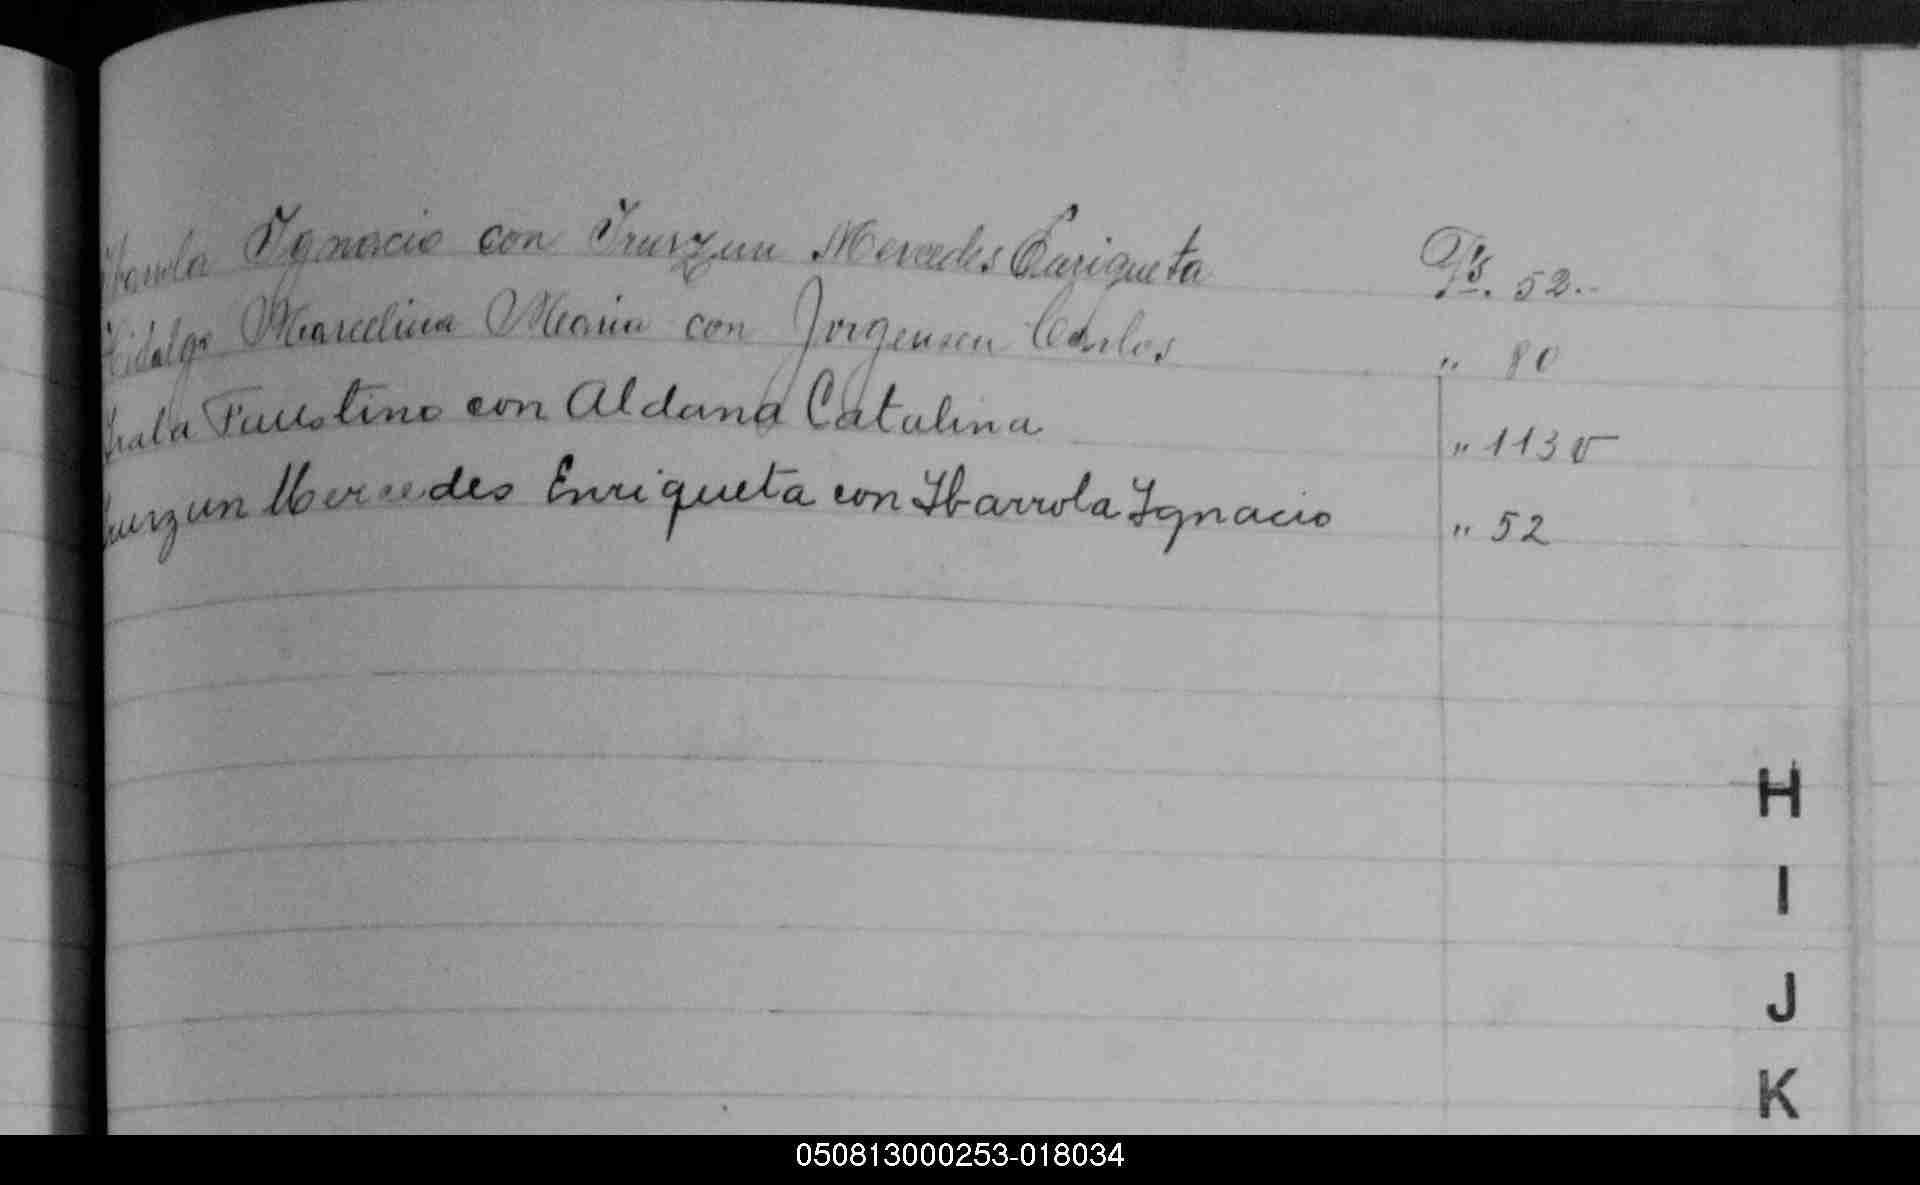 Ibarrola Ignacio con Irurzun Mercedes Enriqueta 52.
Hidalgo Marcelina Maria con Jorgensen Carlos " 80
Faustino con Aldana Catalina " 113
Irurzun Mercedes Enriqueta con Ibarrola Ignacio " 52
H
I
J
K
050813000253-018034